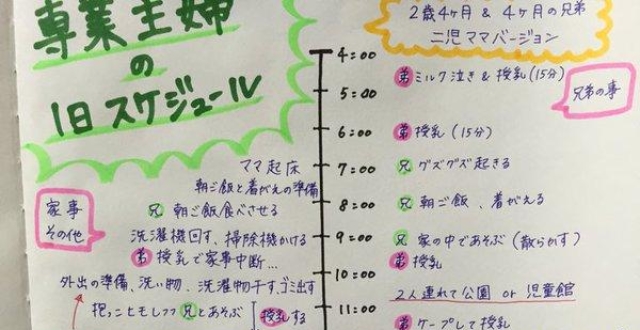 専業主婦
の
1日スケジュール
2歳4ヶ月 & 4ヶ月の兄弟
二児ママバージョン
4:00
弟 ミルク泣き & 授乳(15分)
兄弟の事
5:00
6:00
弟 授乳(15分)
ママ起床
7:00
兄 グズグズ起きる
朝ご飯と着がえの準備
家事
その他
兄 朝ご飯食べさせる
8:00
兄 朝ご飯、着がえる
洗濯機回す、掃除機かける
9:00
兄 家の中であそぶ(散らかす)
弟 授乳で家事中断…
弟 授乳
外出の準備、洗い物、洗濯物干す、ゴミ出す
10:00
2人連れて公園 or 児童館
抱っこヒモしつつ兄とあそぶ
授乳する
11:00
弟 ケープして授乳